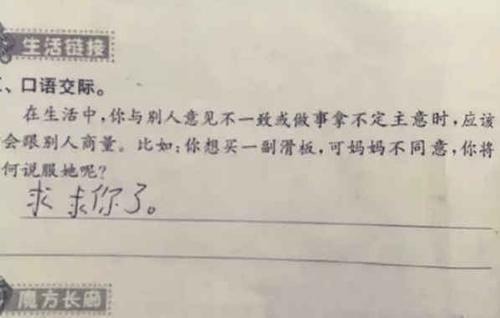 生活链接
、口语交际。
在生活中,你与别人意见不一致或做事拿不定主意时,应该
会跟别人商量。比如:你想买一副滑板,可妈妈不同意,你将
何说服她呢?
求求你了。
魔方长廊